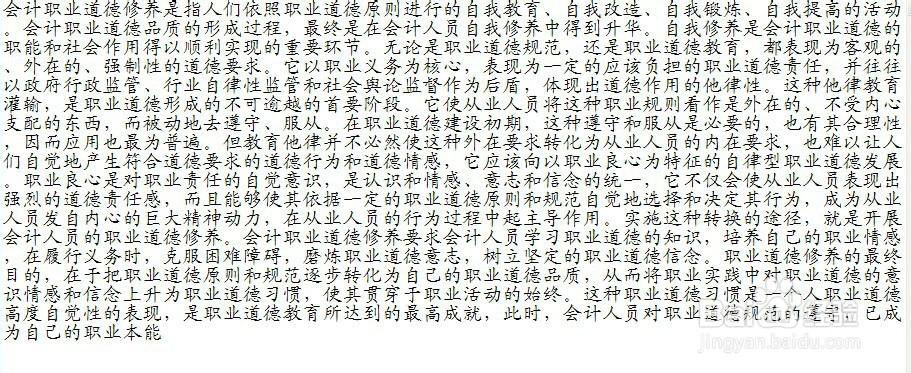 会计职业道德修养是指人们依照职业道德原则进行的自我教育、自我改造、自我锻炼、自我提高的活动
。会计职业道德品质的形成过程，最终是在会计人员自我修养中得到升华。自我修养是会计职业道德的
职能和社会作用得以顺利实现的重要环节。无论是职业道德规范，还是职业道德教育，都表现为客观的
、外在的、强制性的道德要求。它以职业义务为核心，表现为一定的应该负担的职业道德责任，并往往
以政府行政监管、行业自律性监管和社会舆论监督作为后盾，体现出道德作用的他律性。这种他律教育
灌输，是职业道德形成的不可逾越的首要阶段。它使从业人员将这种职业规则看作是外在的、不受内心
支配的东西，而被动地去遵守、服从。在职业道德建设初期，这种遵守和服从是必要的，也有其合理性
，因而应用也最为普遍。但教育他律并不必然使这种外在要求转化为从业人员的内在要求，也难以让人
们自觉地产生符合道德要求的道德行为和道德情感，它应该向以职业良心为特征的自律型职业道德发展
。职业良心是对职业责任的自觉意识，是认识和情感、意志和信念的统一，它不仅会使从业人员表现出
强烈的道德责任感，而且能够使其依据一定的职业道德原则和规范自觉地选择和决定其行为，成为从业
人员发自内心的巨大精神动力，在从业人员的行为过程中起主导作用。实施这种转换的途径，就是开展
会计人员的职业道德修养。会计职业道德修养要求会计人员学习职业道德的知识，培养自己的职业情感
，在履行义务时，克服困难障碍，磨炼职业道德意志，树立坚定的职业道德信念。职业道德修养的最终
目的，在于把职业道德原则和规范逐步转化为自己的职业道德品质，从而将职业实践中对职业道德的意
识情感和信念上升为职业道德习惯，使其贯穿于职业活动的始终。这种职业道德习惯是一个人职业道德
高度自觉性的表现，是职业道德教育所达到的最高成就，此时，会计人员对职业道德规范的遵守，已成
为自己的职业本能
Baidu经验
jingyan.baidu.com